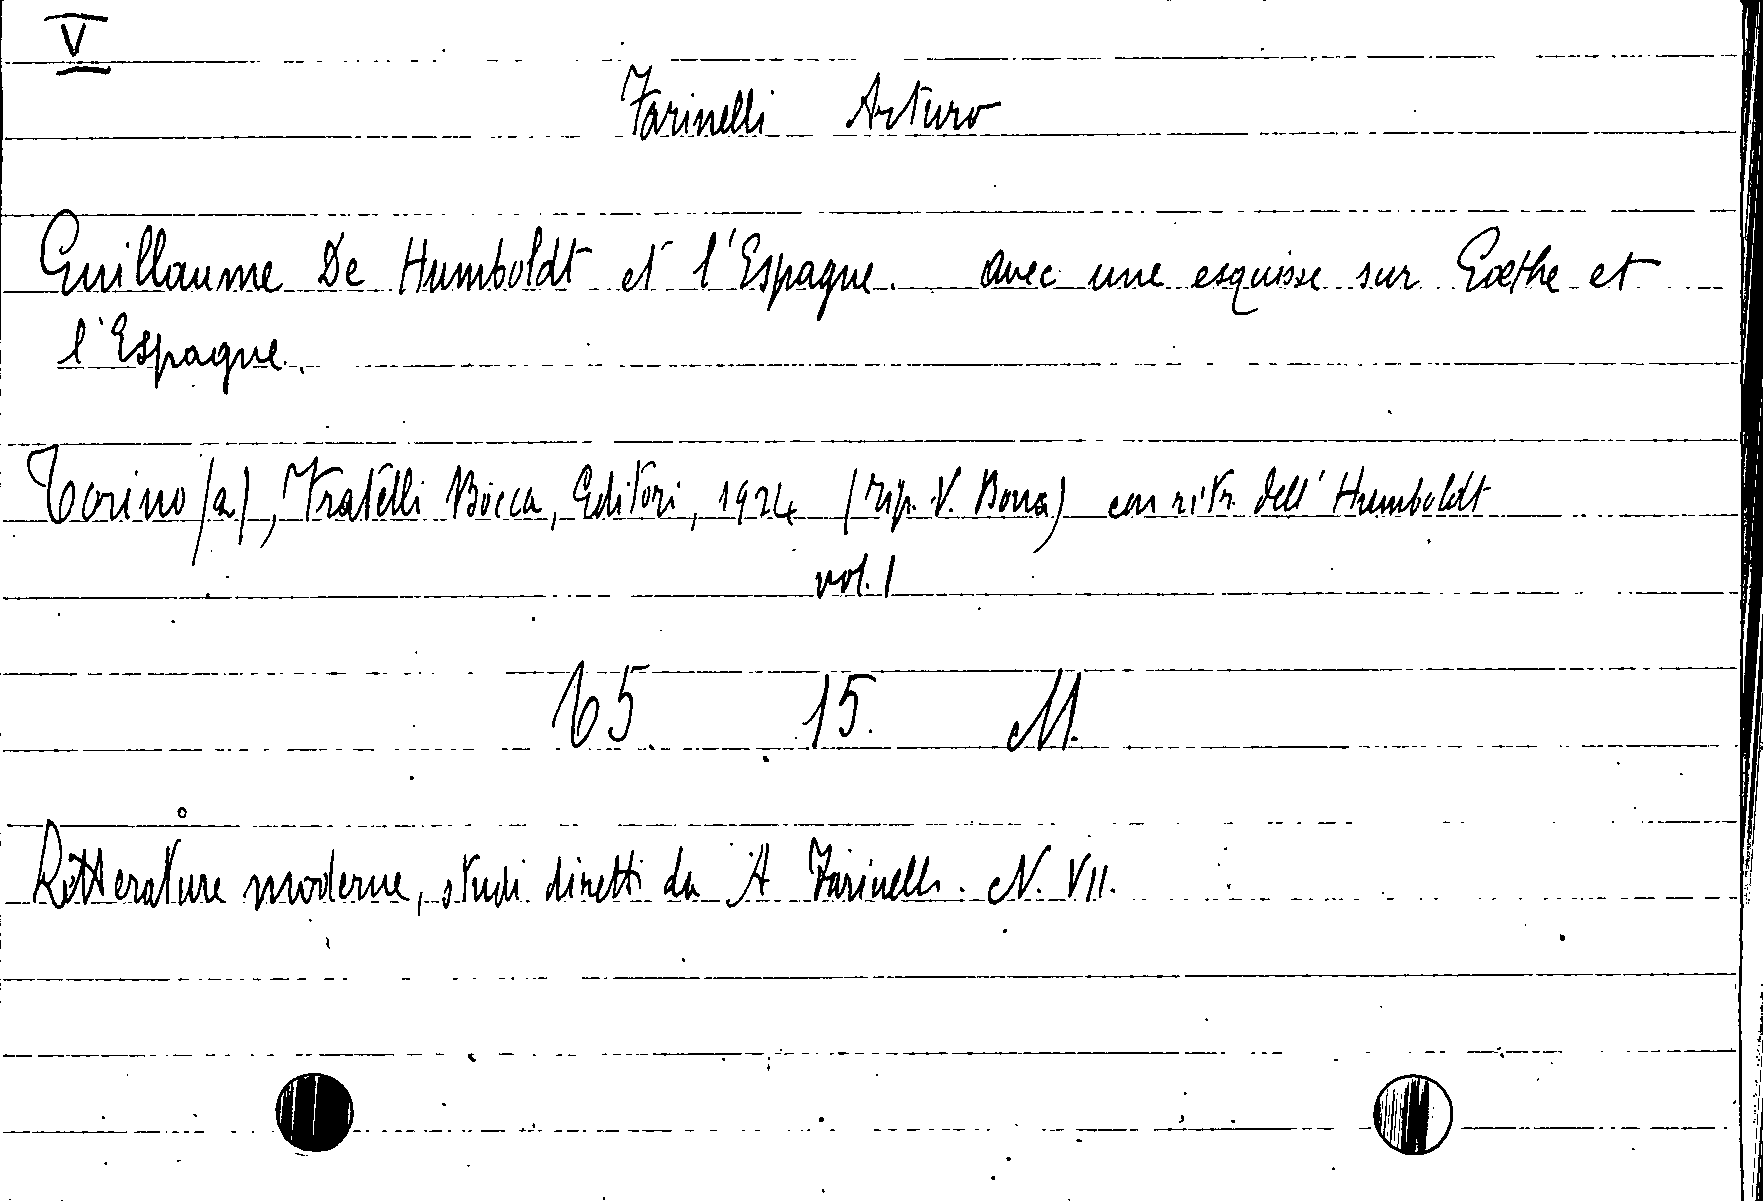 V
Farinelli Arturo
Guillaume De Humboldt et l'Espagne. avec une esquisse sur Goethe et
l'Espagne.
Torino (a), Fratelli Bocca, Editori, 1924 (tip. V. Bona) con ritr. dell'Humboldt
vol. 1
65 15. M.
Letterature moderne, studi diretti da A Farinelli. N. VII.